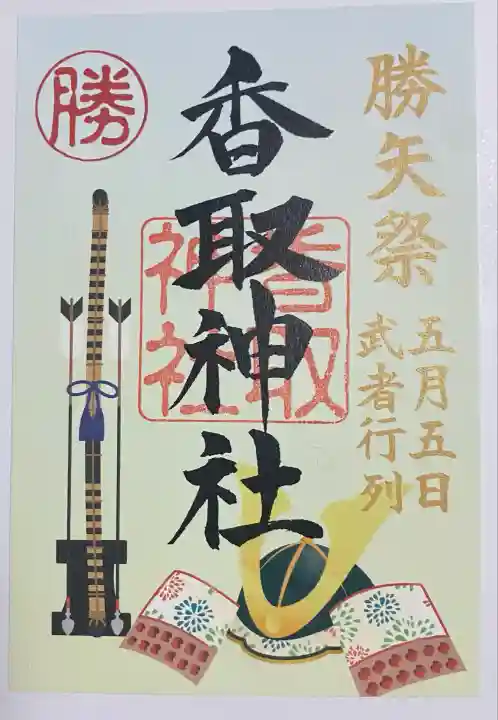 勝矢祭
五月五日
武者行列
香取神社
香取神社
勝